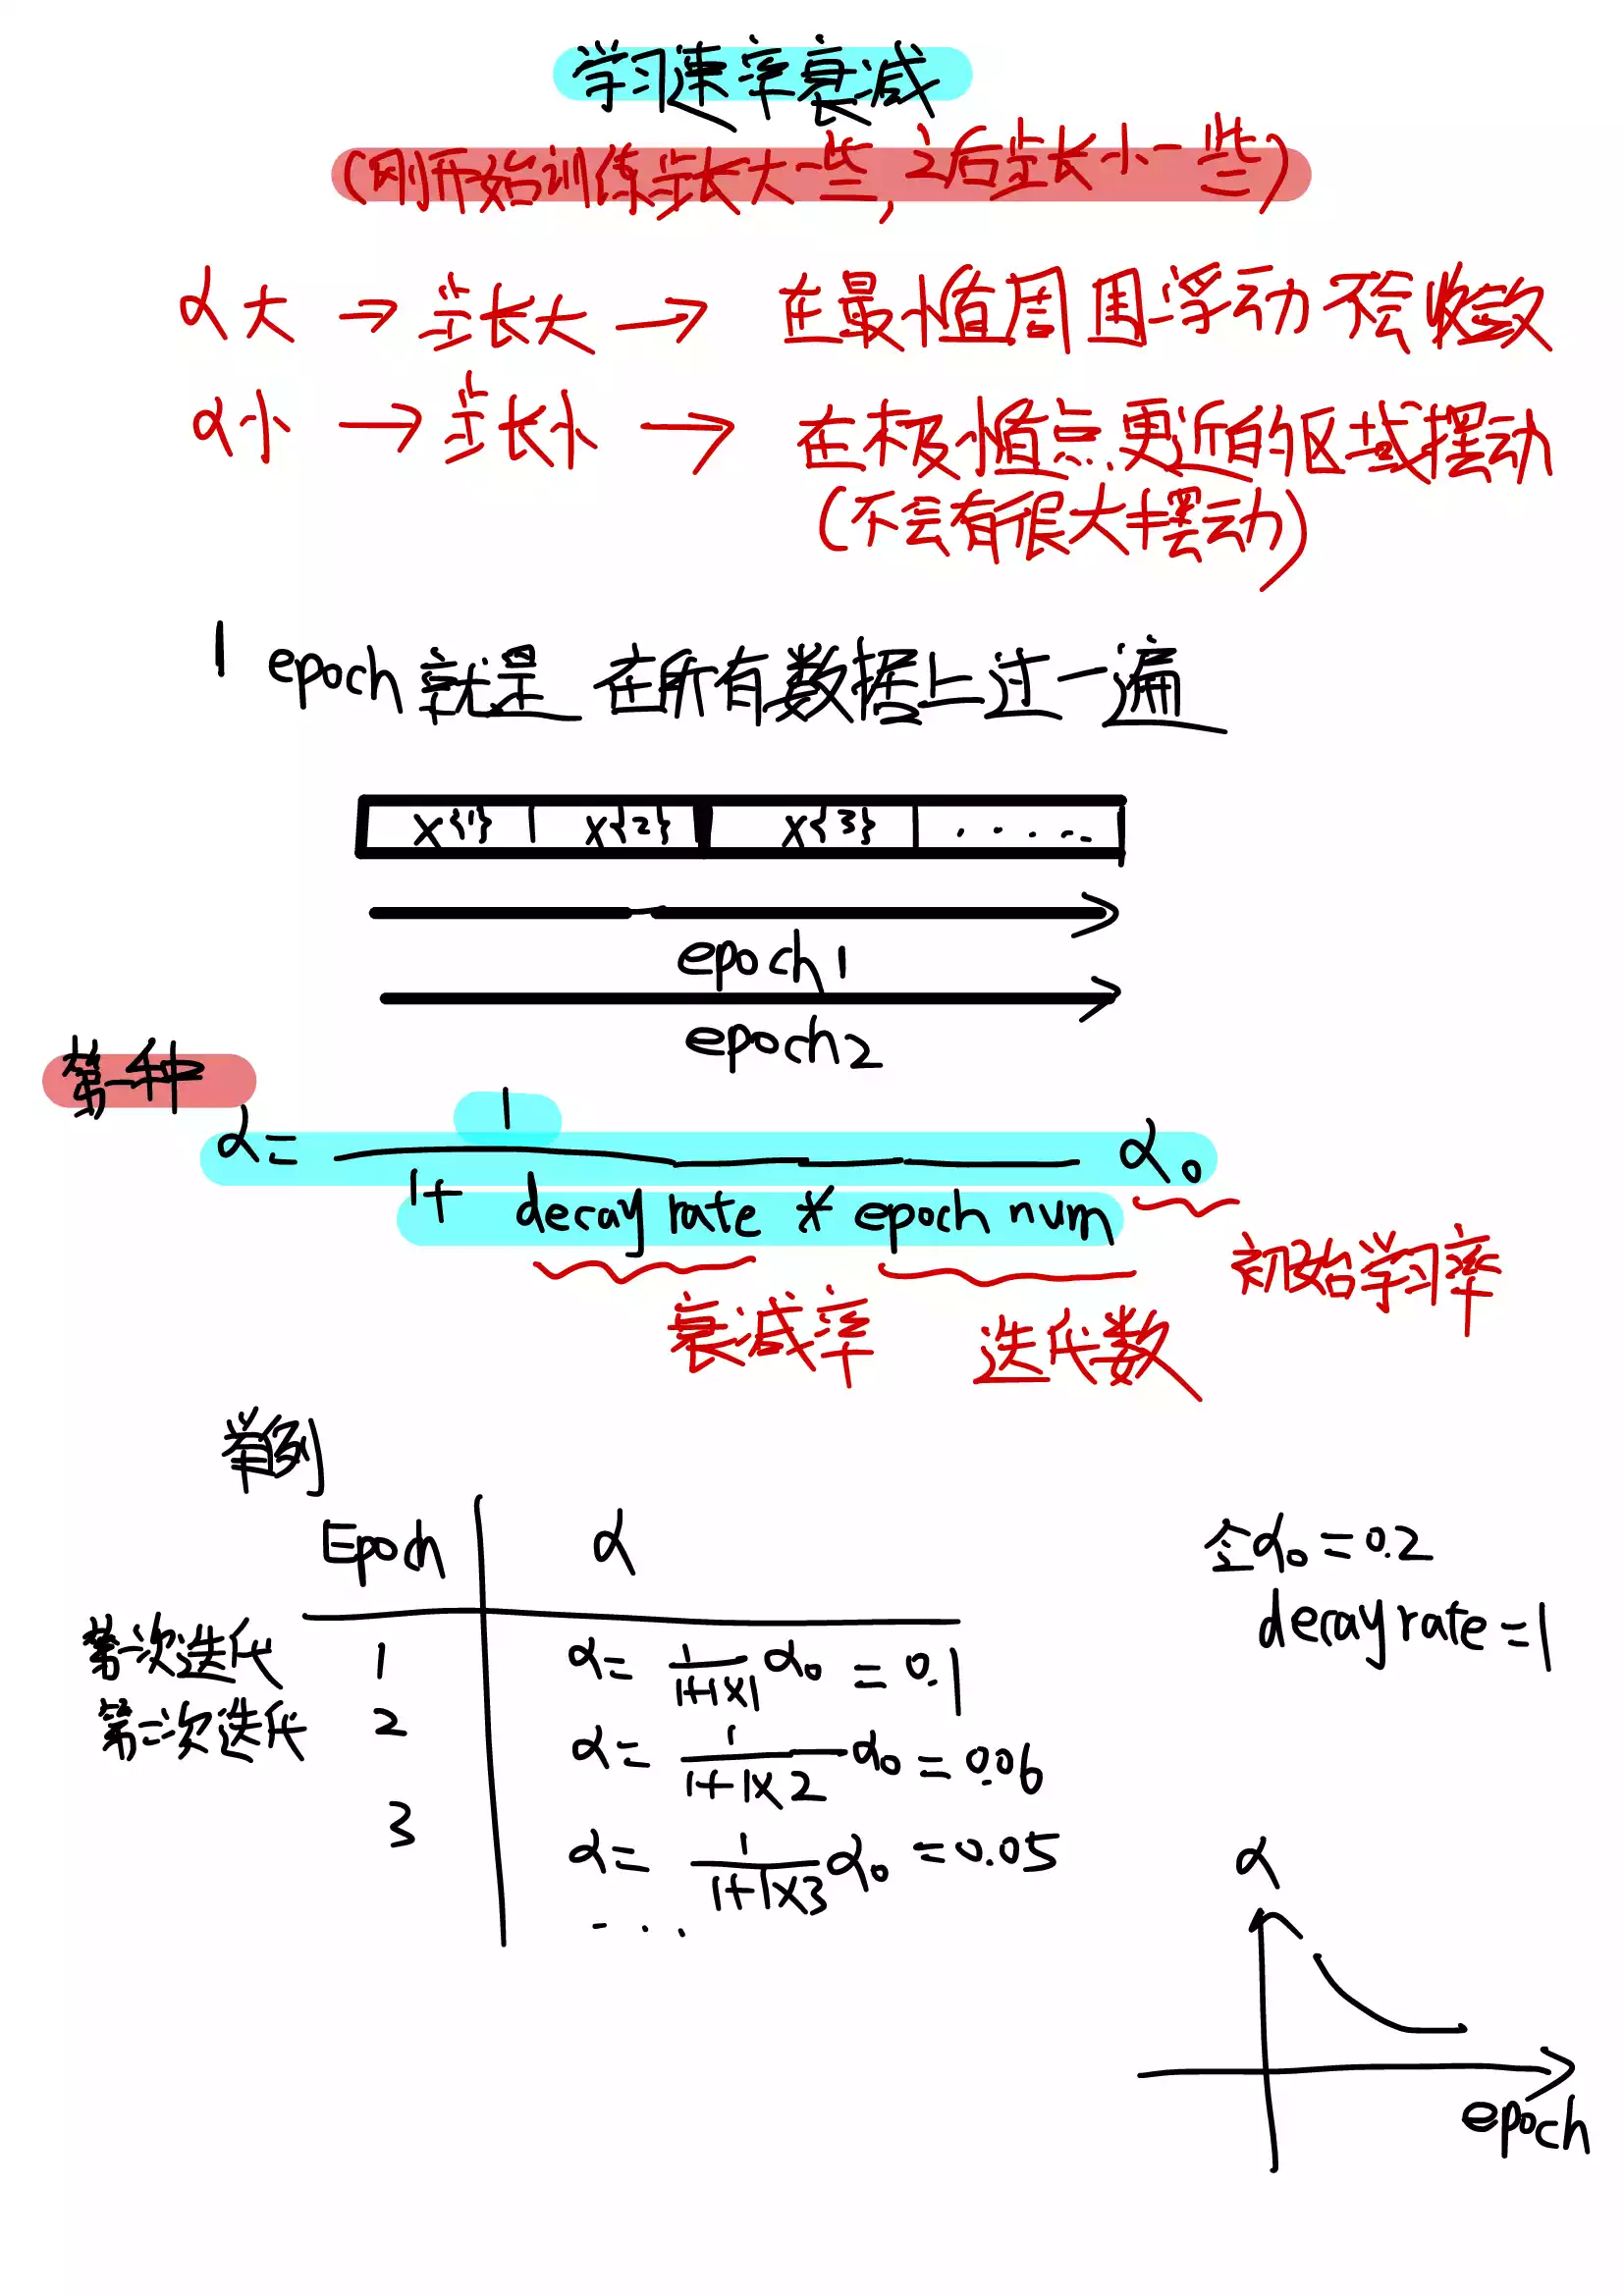 学习速率衰减
(刚开始训练步长大一些,之后步长小一些)
α大 → 步长大 → 在最小值周围浮动不会收敛
α小 → 步长小 → 在极小值点更近的区域摆动
(不会有很大摆动)
1 epoch 就是 在所有数据上过一遍
X{1} X{2} X{3} ......
epoch1
epoch2
第一种
α= 1
1+ decay rate * epoch num α₀
衰减率 迭代数 初始学习率
举列
Epoch α
令α₀=0.2
decay rate=1
第一次迭代 1 α= 1/(1+1×1) α₀ = 0.1
第二次迭代 2 α= 1/(1+1×2) α₀ = 0.06
3 α= 1/(1+1×3) α₀ = 0.05
...
α
epoch